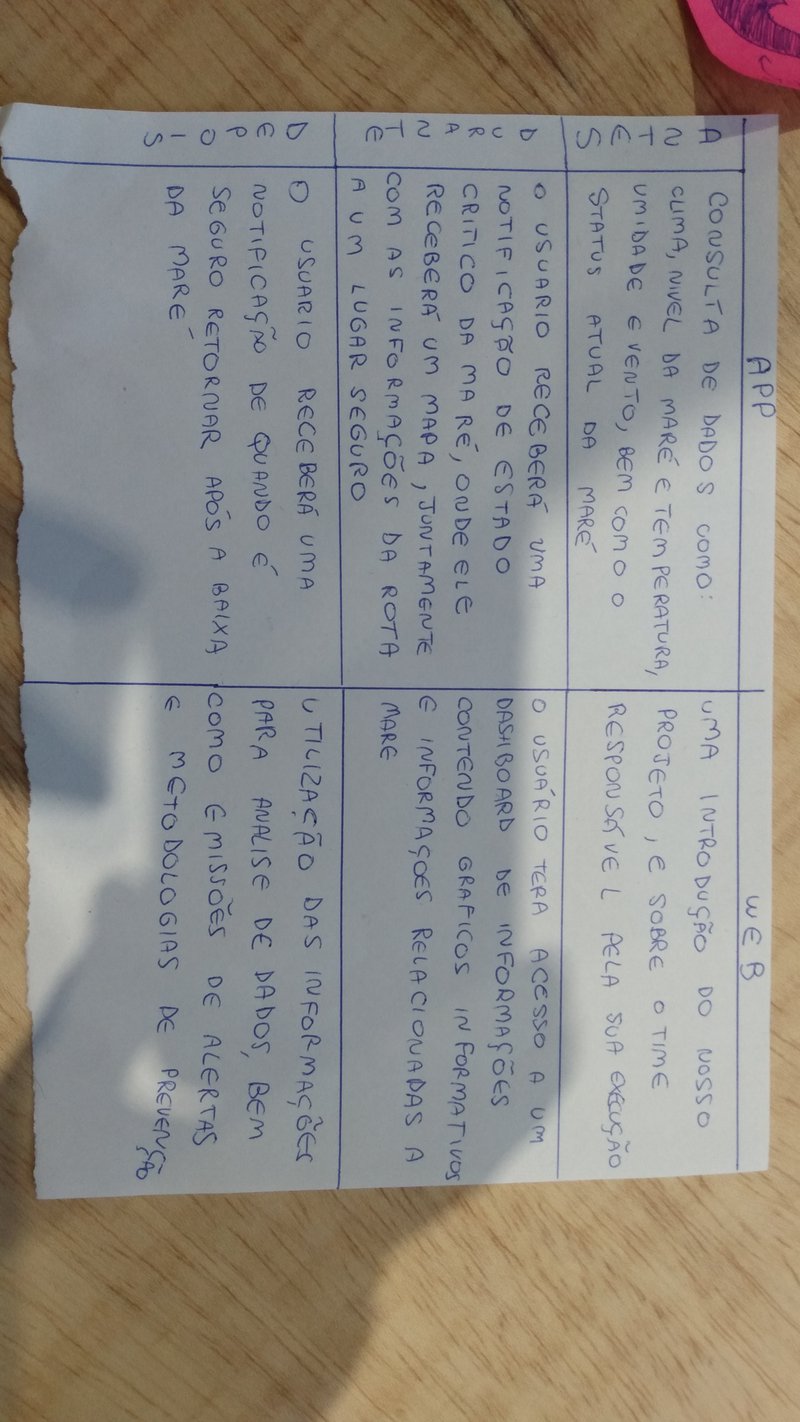 APP
WEB
ANTES
CONSULTA DE DADOS COMO:
CLIMA, NIVEL DA MARÉ E TEMPERATURA,
UMIDADE E VENTO, BEM COMO O
STATUS ATUAL DA MARÉ
UMA INTRODUÇÃO DO NOSSO
PROJETO, E SOBRE O TIME
RESPONSÁVEL PELA SUA EXECUÇÃO
DURANTE
O USUARIO RECEBERÁ UMA
NOTIFICAÇÃO DE ESTADO
CRITICO DA MARÉ, ONDE ELE
RECEBERÁ UM MAPA, JUNTAMENTE
COM AS INFORMAÇÕES DA ROTA
A UM LUGAR SEGURO
O USUÁRIO TERA ACESSO A UM
DASHBOARD DE INFORMAÇÕES
CONTENDO GRAFICOS INFORMATIVOS
E INFORMAÇOES RELACIONADAS A
MARE
DEPOIS
O USUARIO RECEBERÁ UMA
NOTIFICAÇÃO DE QUANDO É
SEGURO RETORNAR APÓS A BAIXA
DA MARÉ
UTILIZAÇÃO DAS INFORMAÇÕES
PARA ANALISE DE DADOS, BEM
COMO EMISSÕES DE ALERTAS
E METODOLOGIAS DE PREVENÇÃO